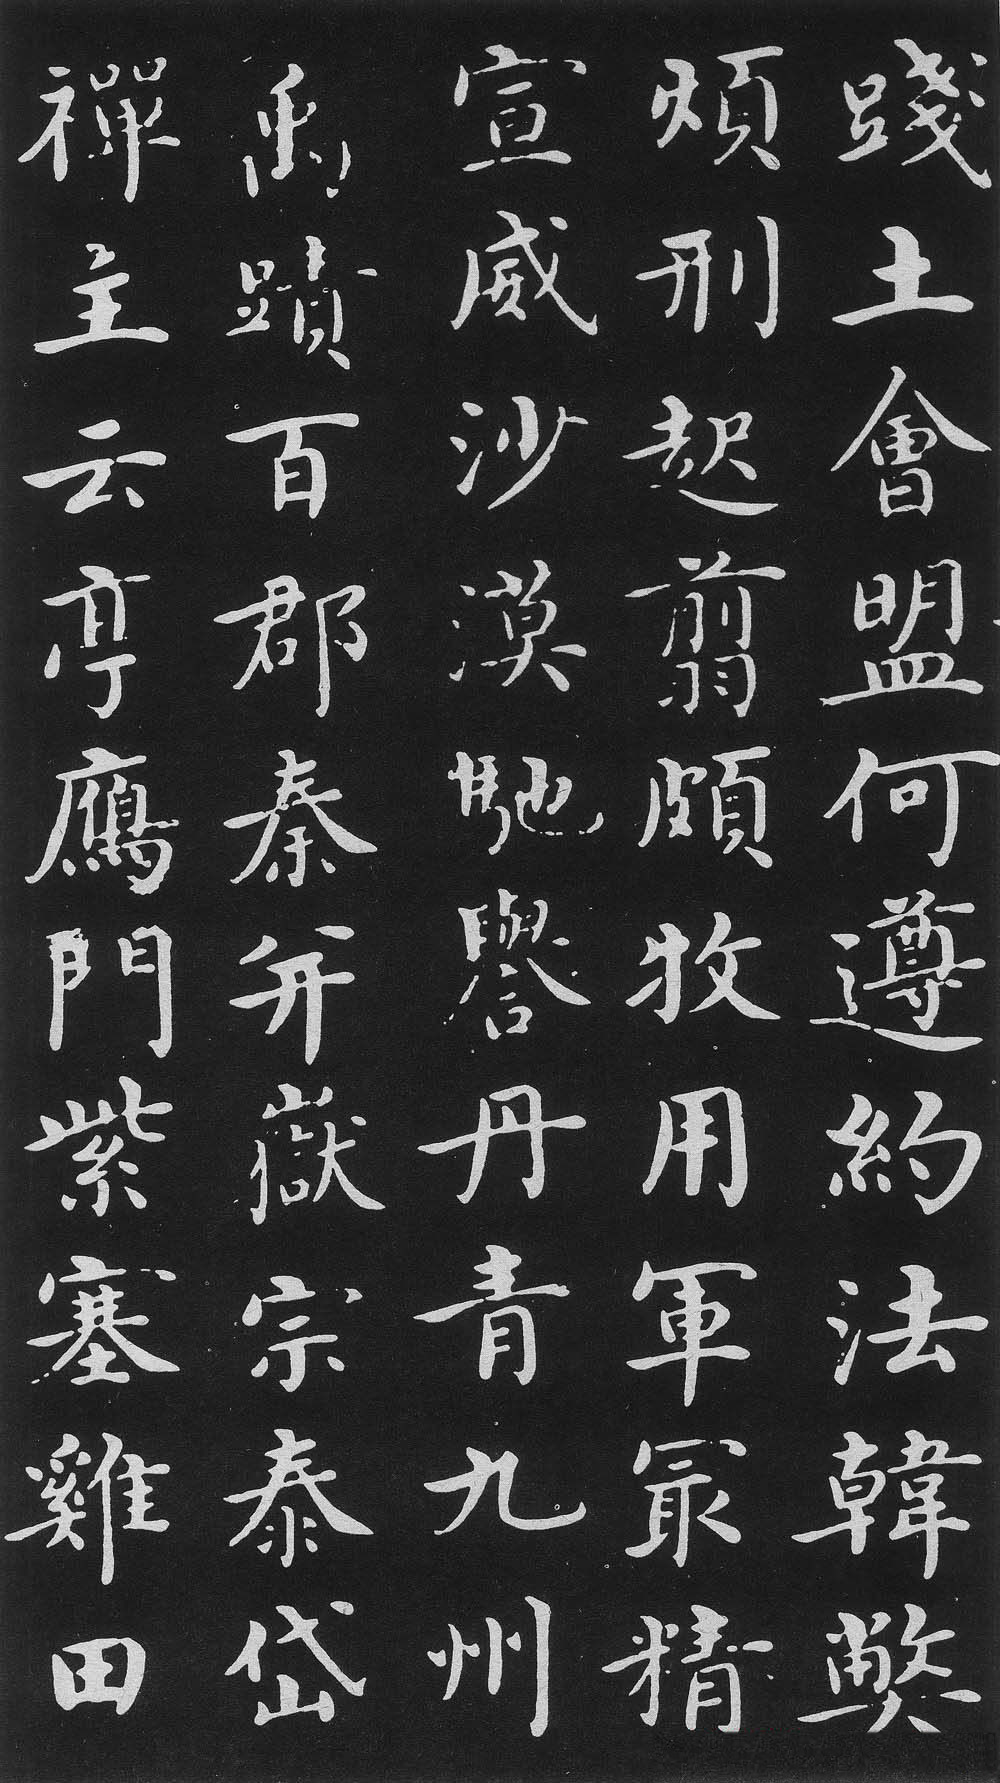 踐土會盟何遵約法韓弊
煩刑起翦頗牧用軍冣精
宣威沙漠馳譽丹青九州
禹蹟百郡秦并嶽宗泰岱
禪主云亭鴈門紫塞雞田